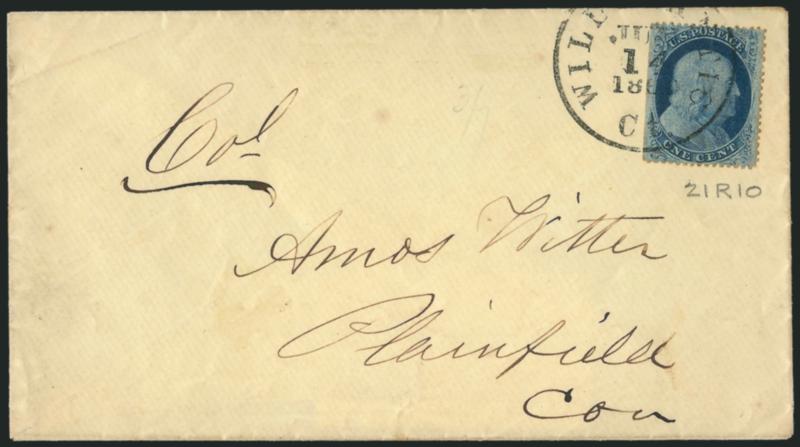 JU
1
186
C
U.S. POSTAGE
ONE CENT
21R10
3/7
Col
Amos Witter
Plainfield
Con